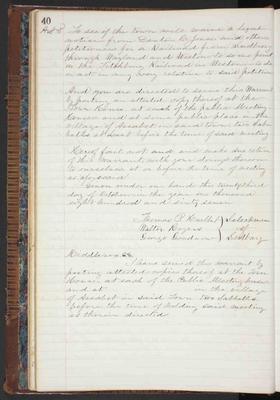 40
Art. 5. To see if the town will
motion from Denton Defense and others
petitioners for a Railroad from
through Wayland and Weston to some point
on the Fitchburg Railroad in Weston or do
or act in any way relative to said petition.
And you are directed to serve this Warrant
by posting an attested copy thereof at the
Town House at each of the public Meeting
Houses and at some public place in the
village of Assabet in said town two Sab-
baths at least before the time of said meeting
Hereof fail not and make due return
of this Warrant with your doings thereon
to ourselves at or before the time of meeting
as aforesaid.
Given under our hands the twenty third
day of October in the year one thousand
eight hundred and sixty seven
Thomas P. Hurlbut
Walter Rogers
George Goodnow
Selectmen
of
Sudbury
Middlesex ss.
I have served this warrant by
posting attested copies thereof at the Town
House at each of the Public Meeting houses
and at in the village
of Assabet in said Town two Sabbaths
before the time of holding said meeting
as therein directed.